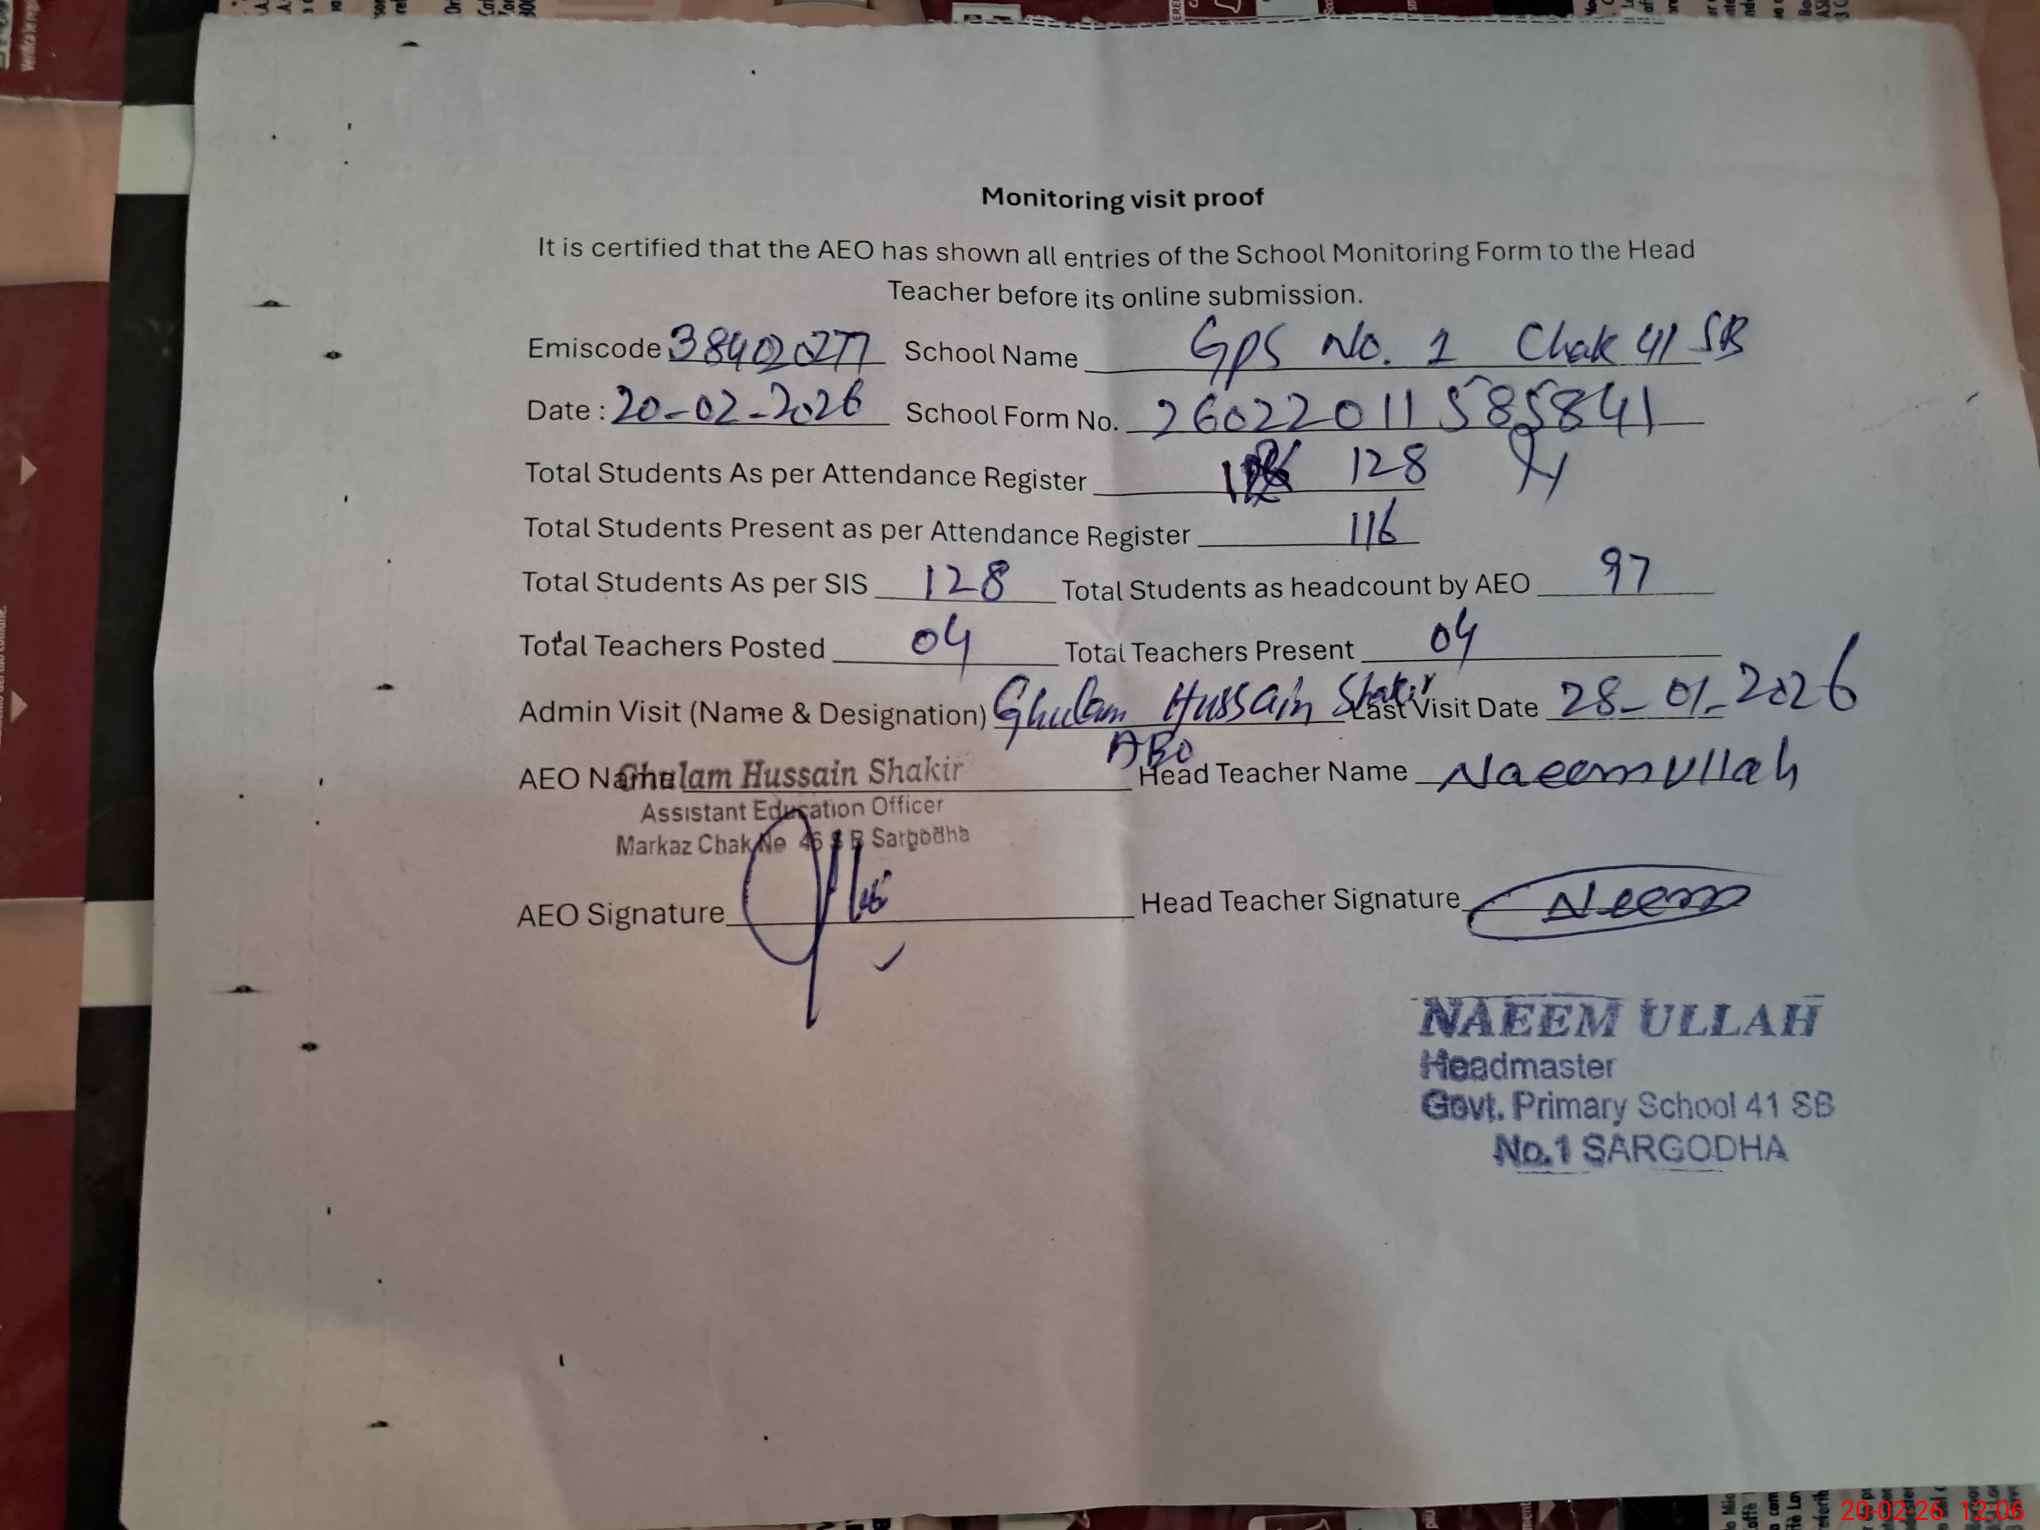 Monitoring visit proof
It is certified that the AEO has shown all entries of the School Monitoring Form to the Head
Teacher before its online submission.
Emiscode 384020277 School Name GPS No. 1 Chak 41 SB
Date : 20-02-2026 School Form No. 26022011585841
Total Students As per Attendance Register 128
Total Students Present as per Attendance Register 116
Total Students As per SIS 128 Total Students as headcount by AEO 97
Total Teachers Posted 04 Total Teachers Present 04
Admin Visit (Name & Designation) Ghulam Hussain Shakir Last Visit Date 28-01-2026
AEO
AEO Name Ghulam Hussain Shakir Head Teacher Name Naeemullah
Assistant Education Officer
Markaz Chak No 46 S B Sargodha
AEO Signature Head Teacher Signature Naeem
NAEEM ULLAH
Headmaster
Govt. Primary School 41 SB
No.1 SARGODHA
20-02-26 12:06